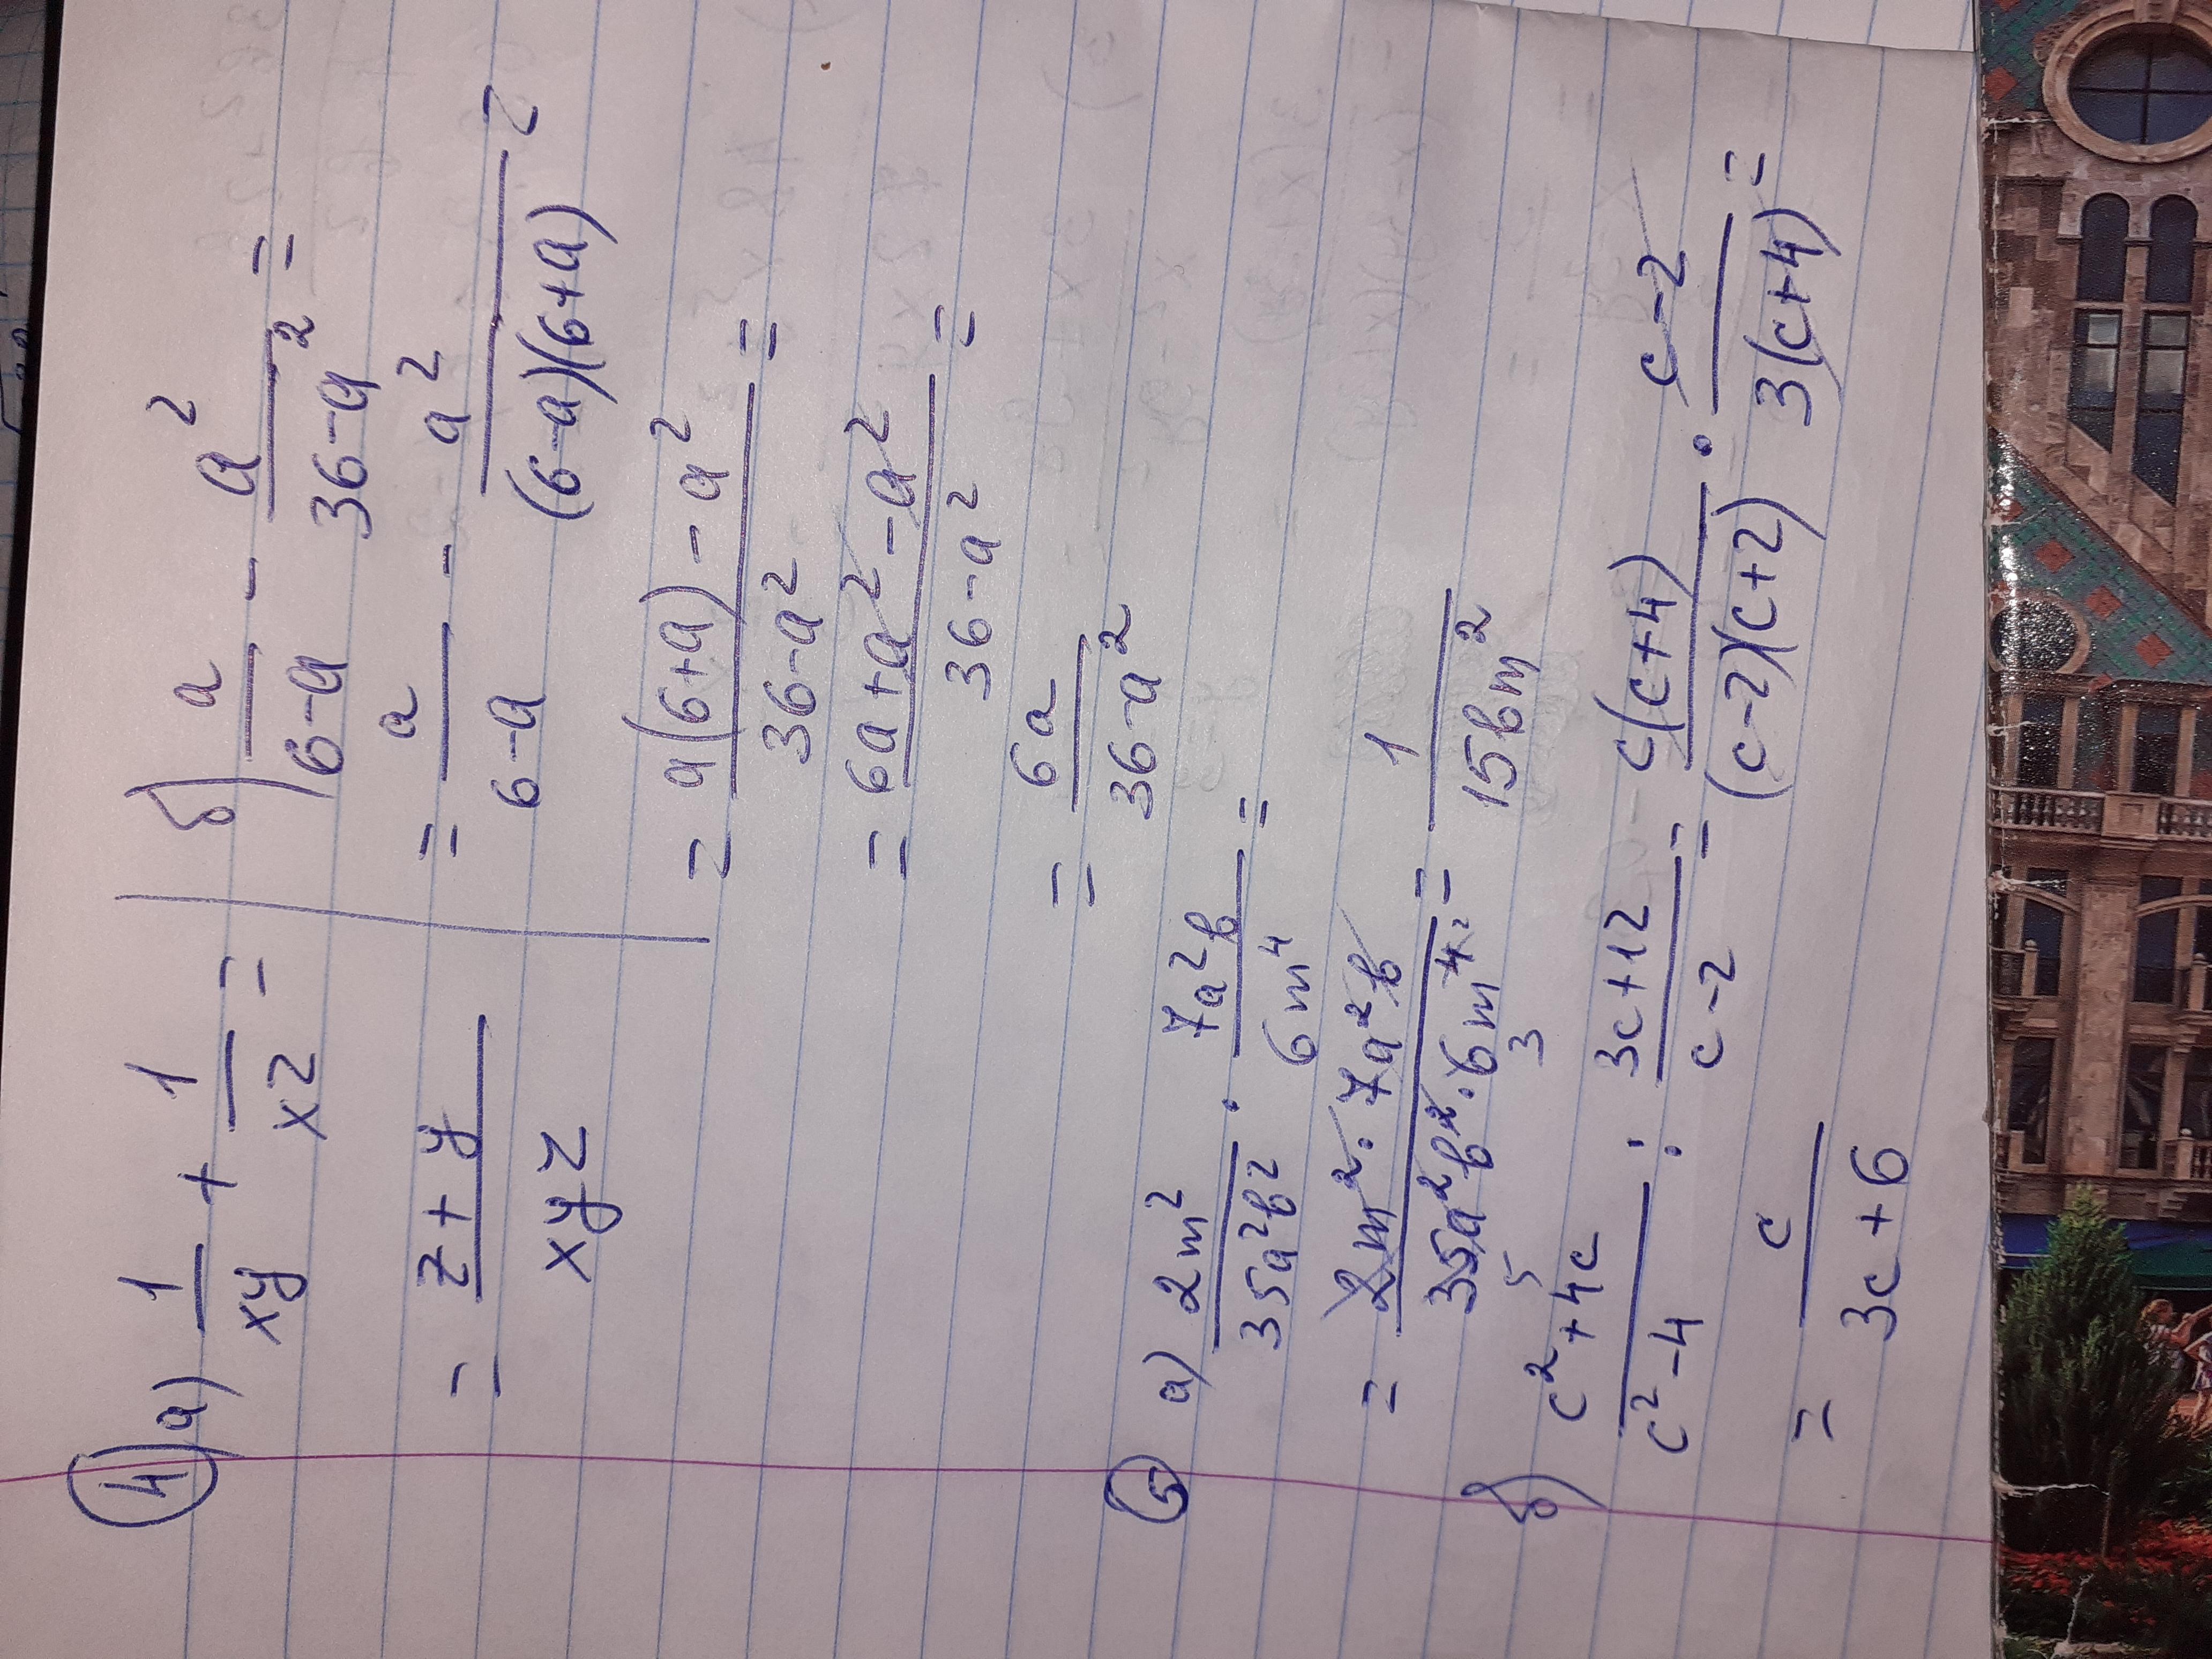 ④ а) 1/xy + 1/xz =
= z + y / xyz
б) a/6-a - a²/36-a² =
= a/6-a - a²/(6-a)(6+a) =
= a(6+a) - a²/36-a² =
= 6a+a²-a²/36-a² =
= 6a/36-a²
⑤ а) 2m²/35a²b² · 7a²b/6m⁴ =
= 2m² · 7a²b/35a²b² · 6m⁴ = 1/15bm²
5 3 2
б) c²+4c/c²-4 : 3c+12/c-2 = c(c+4)/(c-2)(c+2) · c-2/3(c+4) =
= c/3c+6